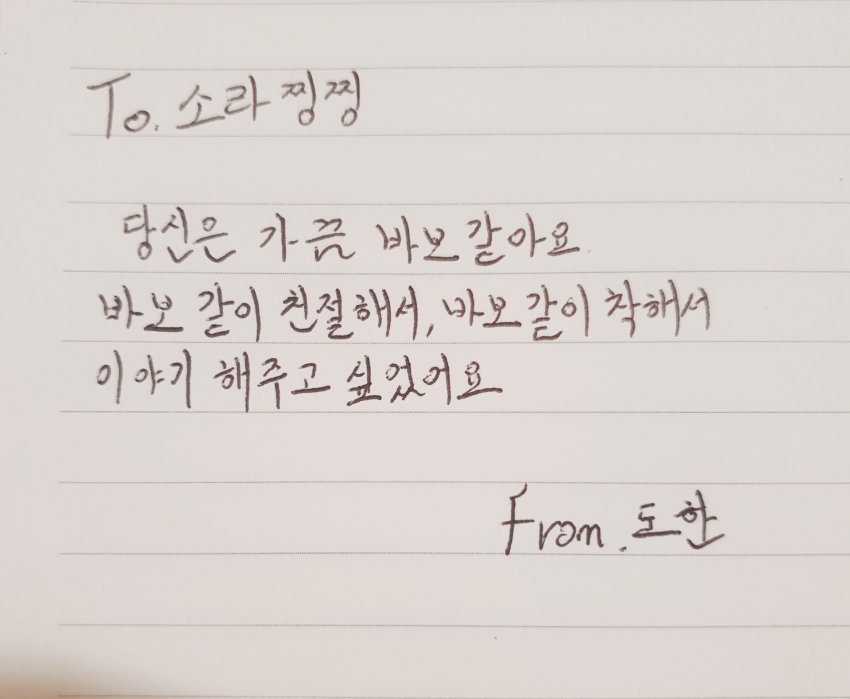 To. 소라찡찡
당신은 가끔 바보같아요
바보 같이 친절해서, 바보같이 착해서
이야기 해주고 싶었어요
From. 도한